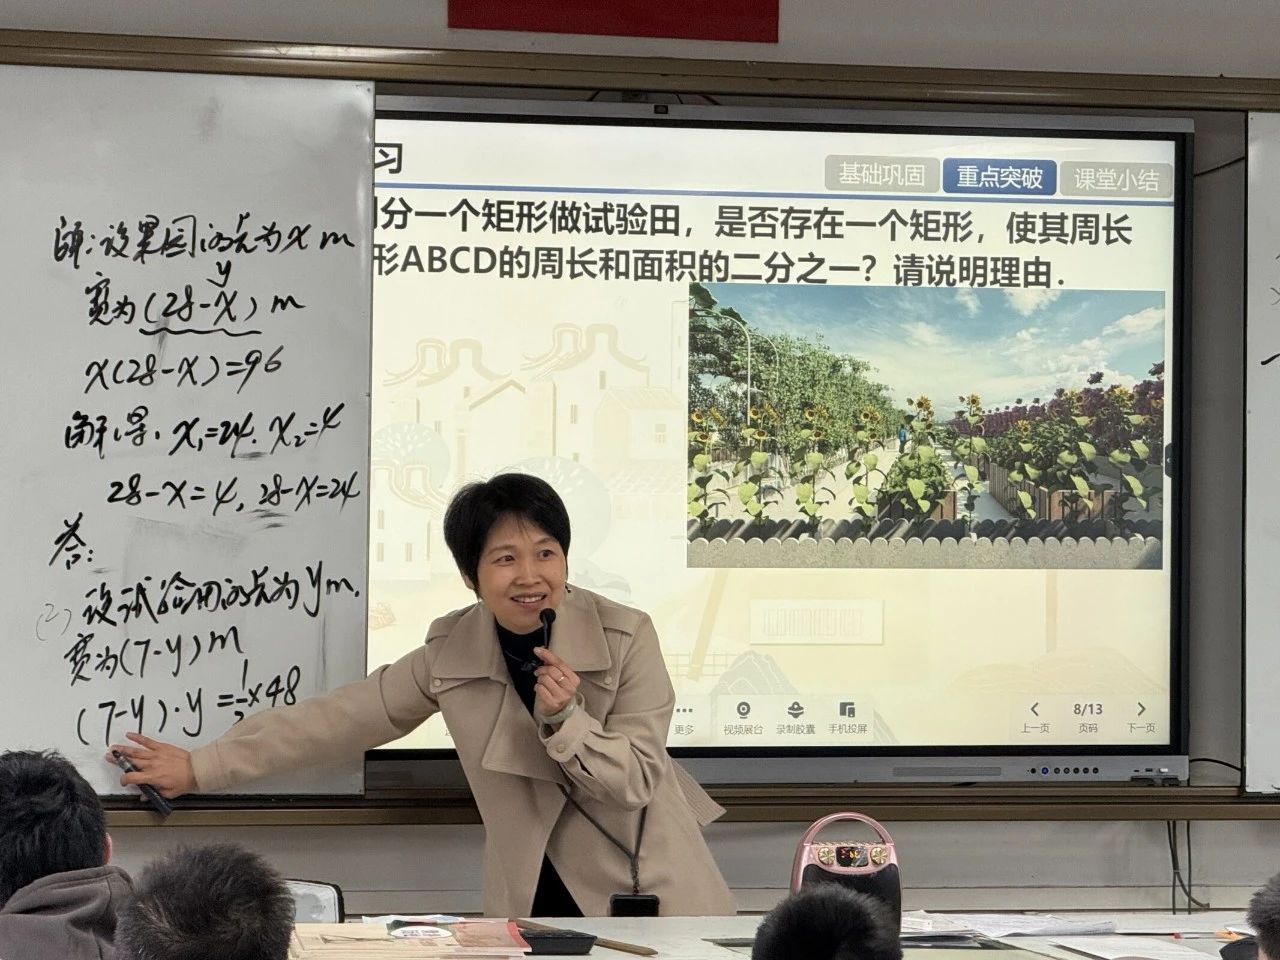 解：设果园的长为x m
y
宽为(28-x) m
x(28-x)=96
解得，x₁=24. x₂=4
28-x=4, 28-x=24
答：
(2) 设试验田的长为ym.
宽为(7-y)m
(7-y)·y=½×48
习
基础巩固 重点突破 课堂小结
分一个矩形做试验田，是否存在一个矩形，使其周长
形ABCD的周长和面积的二分之一？请说明理由．
更多 视频展台 录制胶囊 手机投屏
上一页 8/13 页码 下一页